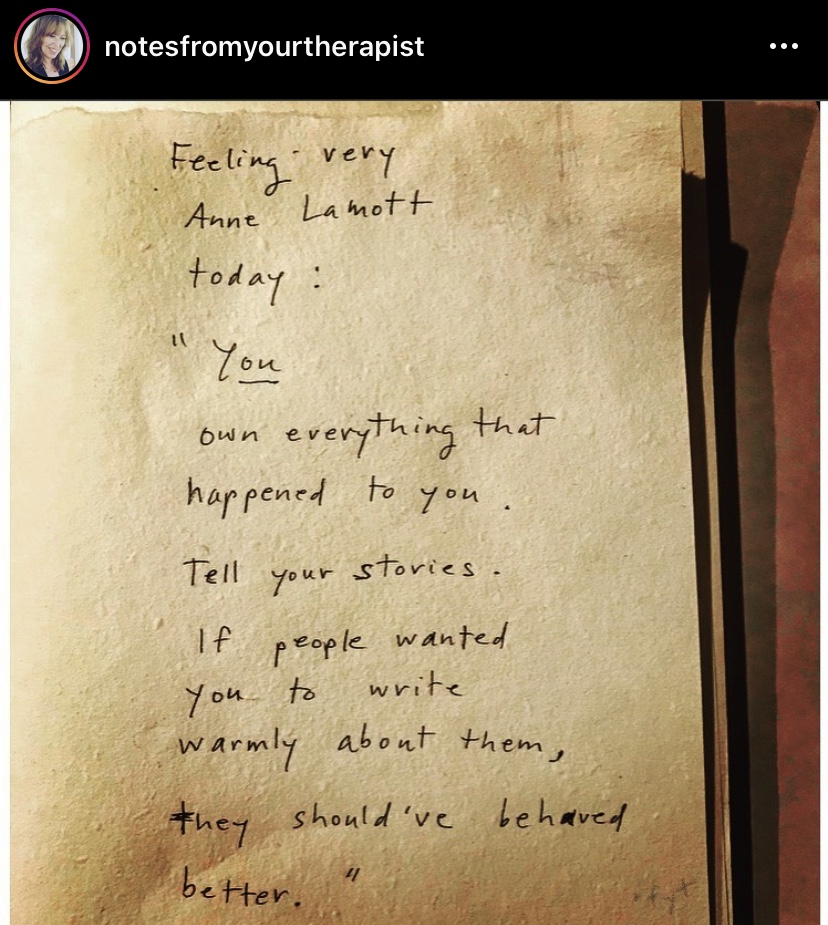 notesfromyourtherapist
Feeling very
Anne Lamott
today :
" You
own everything that
happened to you .
Tell your stories .
If people wanted
you to write
warmly about them,
they should've behaved
better. "